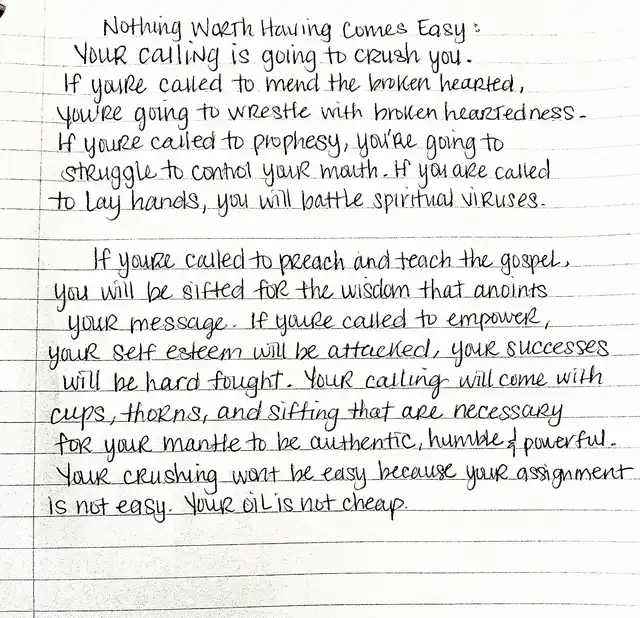 Nothing Worth Having Comes Easy:
Your calling is going to crush you.
If you're called to mend the broken hearted,
you're going to wrestle with broken heartedness.
If you're called to prophesy, you're going to
struggle to control your mouth. If you are called
to lay hands, you will battle spiritual viruses.
If you're called to preach and teach the gospel,
you will be sifted for the wisdom that anoints
your message. If you're called to empower,
your self esteem will be attacked, your successes
will be hard fought. Your calling will come with
cups, thorns, and sifting that are necessary
for your mantle to be authentic, humble & powerful.
Your crushing wont be easy because your assignment
is not easy. Your oil is not cheap.